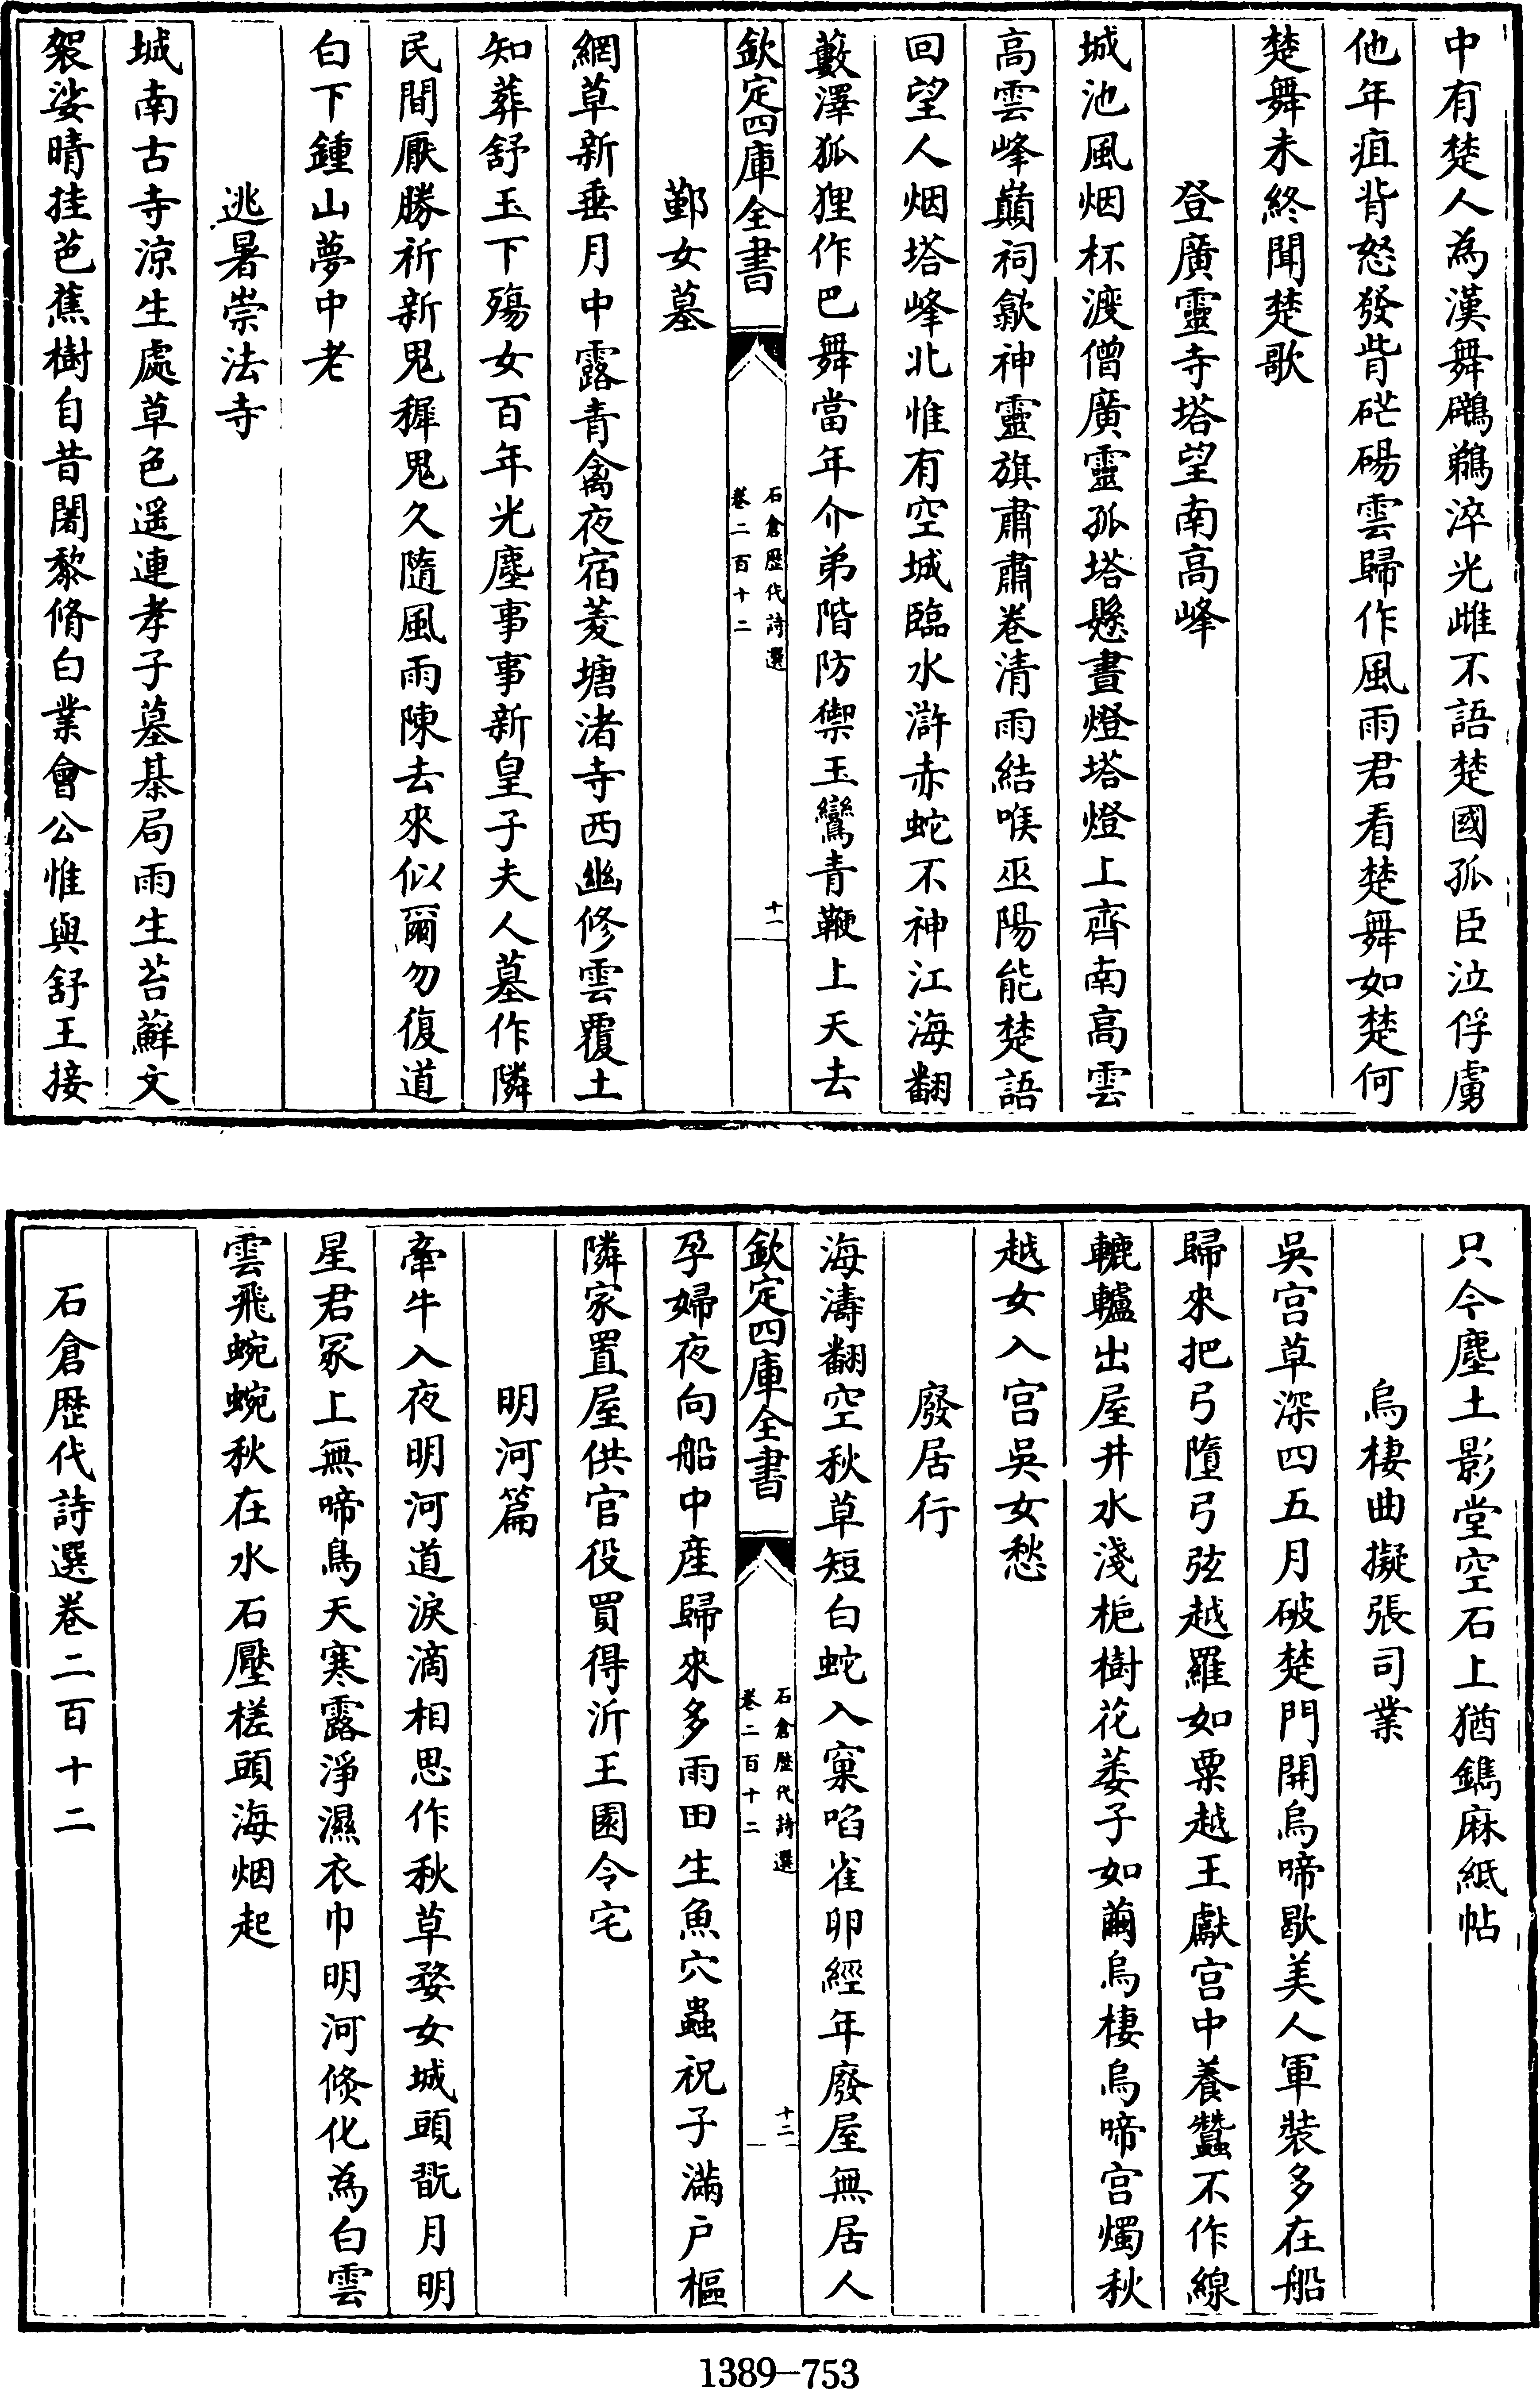 中有楚人為漢舞鸊鵜淬光雌不語楚國孤臣泣俘虜
他年疽背怒發背硭碭雲歸作風雨君看楚舞如楚何
楚舞未終聞楚歌
登廣靈寺塔望南高峰
城池風烟杯渡僧廣靈孤塔懸晝燈塔燈上齊南高雲
高雲峰巔祠歘神靈旗肅肅卷清雨結喉巫陽能楚語
回望人烟塔峰北惟有空城臨水滸赤蛇不神江海翻
藪澤狐狸作巴舞當年介弟階防禦玉鸞青鞭上天去
欽定四庫全書
石倉歷代詩選
卷二百十二
十一
鄞女墓
網草新垂月中露青禽夜宿菱塘渚寺西幽修雲覆土
知葬舒玉下殤女百年光塵事事新皇子夫人墓作隣
民間厭勝祈新鬼穉鬼久隨風雨陳去來似爾勿復道
白下鍾山夢中老
逃暑崇法寺
城南古寺涼生處草色遥連孝子墓棊局雨生苔蘚文
袈裟晴挂芭蕉樹自昔闍黎脩白業會公惟與舒王接
只今塵土影堂空石上猶鐫麻紙帖
烏棲曲擬張司業
吳宫草深四五月破楚門開烏啼歇美人軍裝多在船
歸來把弓墮弓弦越羅如粟越王獻宫中養蠶不作線
轆轤出屋井水淺梔樹花萎子如繭烏棲烏啼宫燭秋
越女入宫吳女愁
廢居行
海濤翻空秋草短白蛇入窠啗雀卵經年廢屋無居人
欽定四庫全書
石倉歷代詩選
卷二百十二
十二
孕婦夜向船中産歸來多雨田生魚穴蟲祝子滿户樞
隣家置屋供官役買得沂王園令宅
明河篇
牽牛入夜明河道淚滴相思作秋草婺女城頭翫月明
星君冢上無啼鳥天寒露淨濕衣巾明河倏化為白雲
雲飛蜿蜿秋在水石壓槎頭海烟起
石倉歷代詩選卷二百十二
1389—753